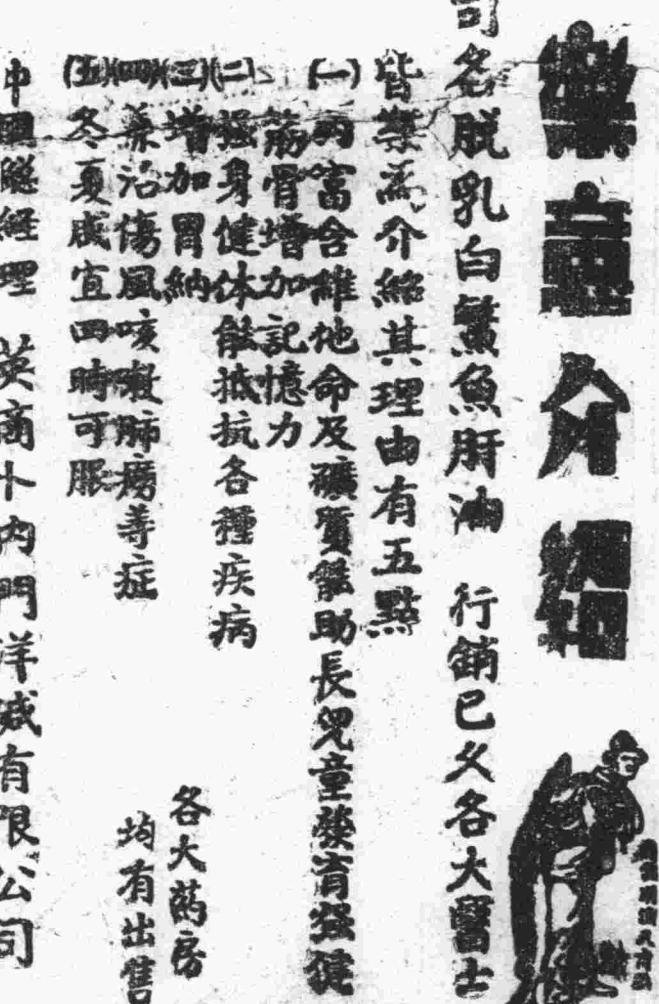 樂意介紹
司名脫乳白鱉魚肝油 行銷已久各大醫士
皆樂為介紹其理由有五點
(一)內富含維他命及礦質能助長兒童發育強健
筋骨增加記憶力
(二)強身健体能抵抗各種疾病
(三)增加胃納
(四)兼治傷風咳嗽肺癆等症
(五)冬夏咸宜四時可服
各大葯房
均有出售
中國總經理 英商卜內門洋碱有限公司